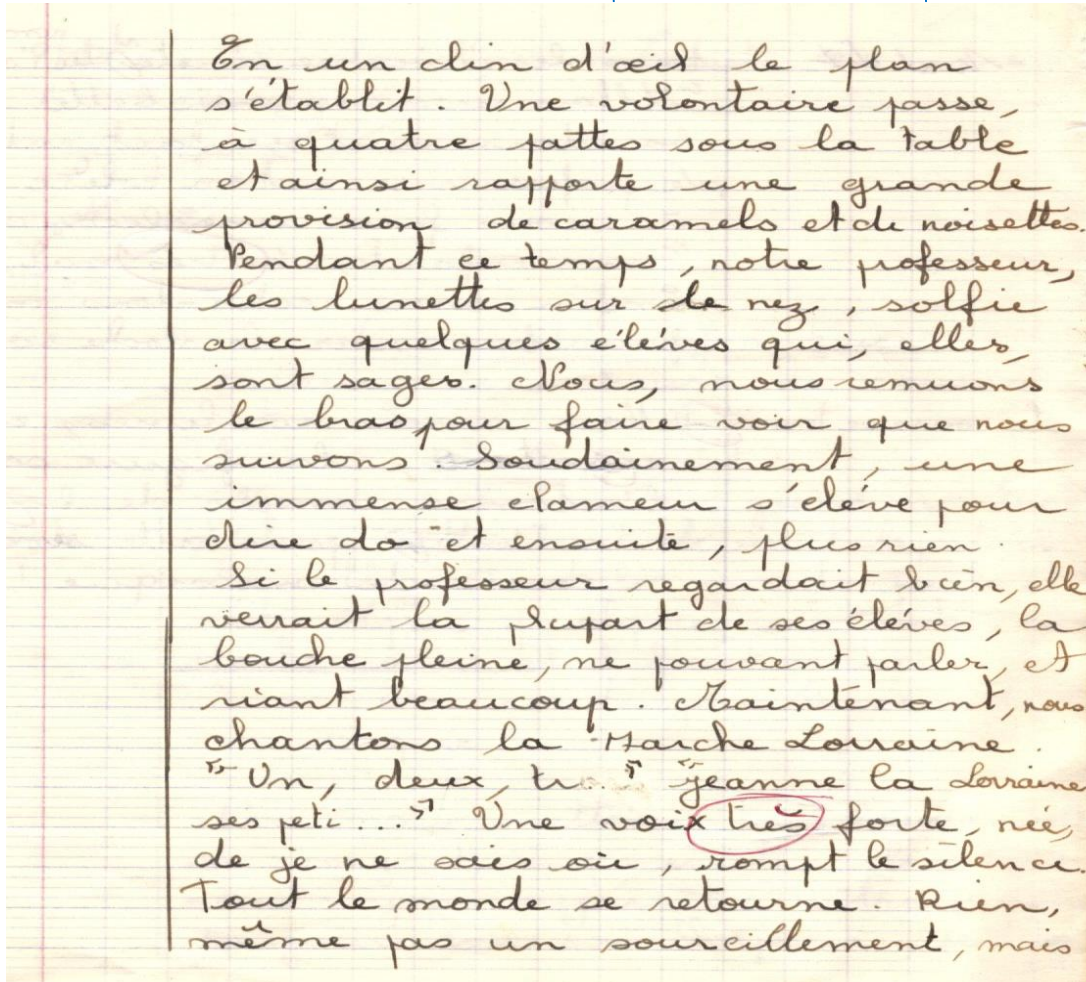 En un clin d'œil le plan
s'établit. Une volontaire passe,
à quatre pattes sous la table
et ainsi rapporte une grande
provision de caramels et de noisettes.
Pendant ce temps, notre professeur,
les lunettes sur le nez, solfie
avec quelques élèves qui, elles,
sont sages. Nous, nous remuons
le bras pour faire voir que nous
suivons. Soudainement, une
immense clameur s'élève pour
dire do et ensuite, plus rien.
Si le professeur regardait bien, elle
verrait la plupart de ses élèves, la
bouche pleine, ne pouvant parler, et
riant beaucoup. Maintenant, nous
chantons la Marche Lorraine.
"Un, deux, tr..." "Jeanne la Lorraine
ses peti..." Une voix très forte, née,
de je ne sais où, rompt le silence.
Tout le monde se retourne. Rien,
même pas un sourcillement, mais